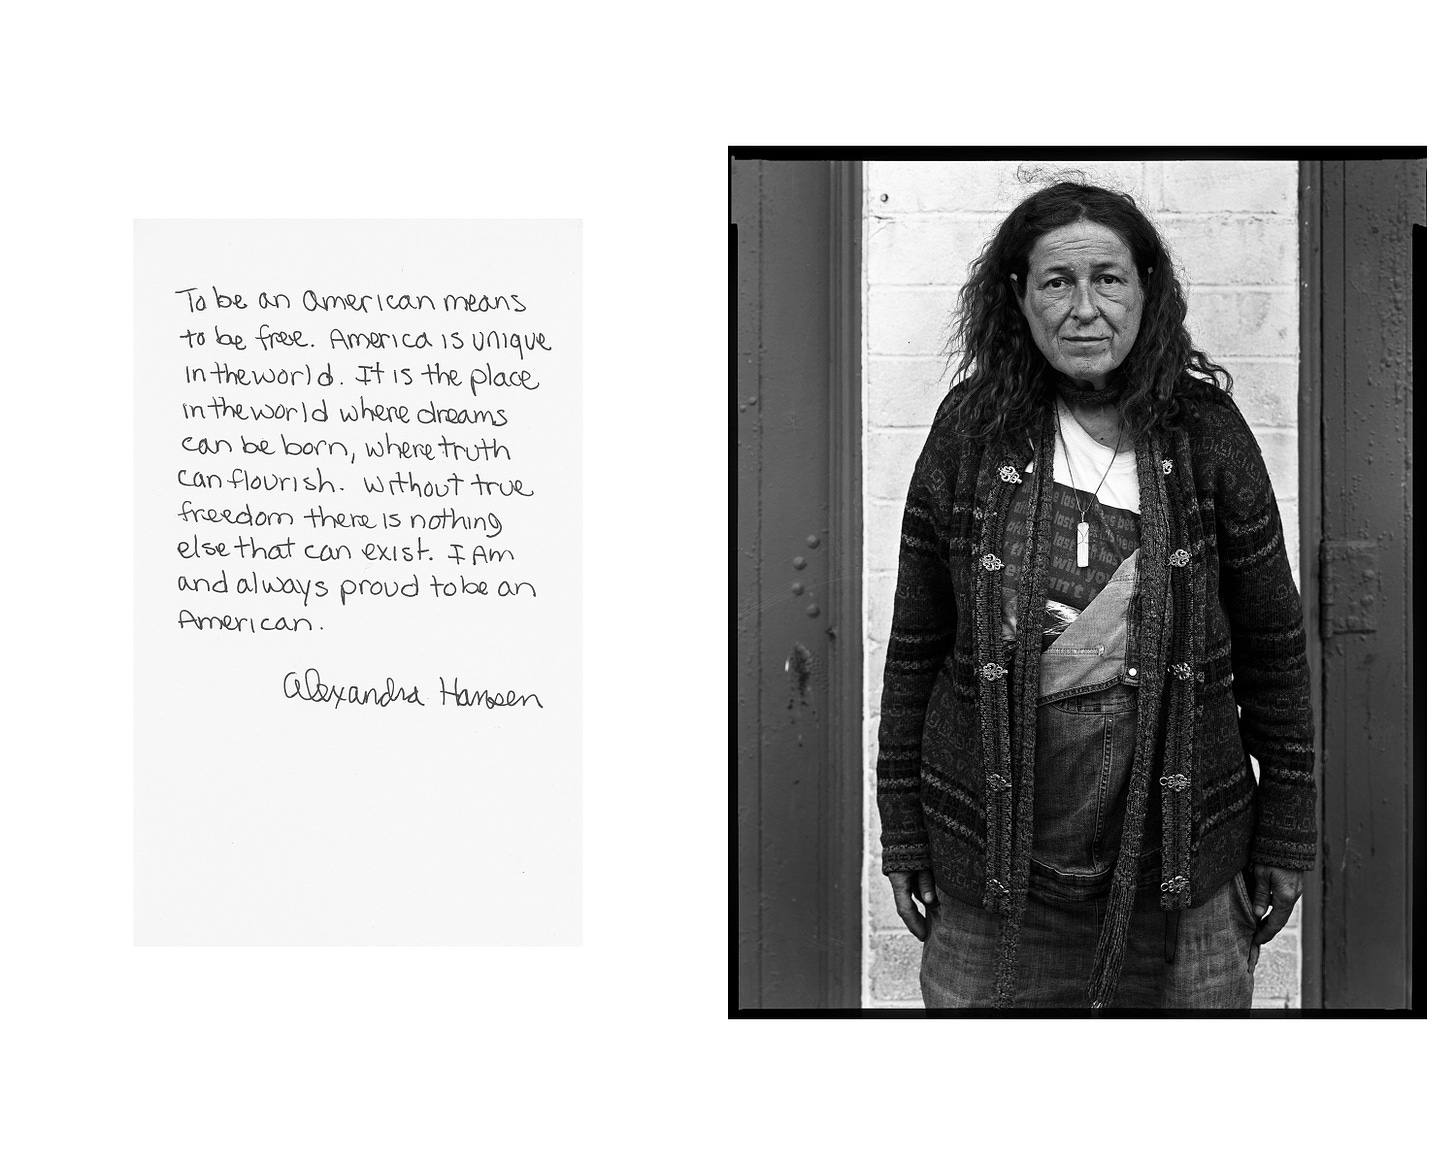 To be an American means
to be free. America is unique
in the world. It is the place
in the world where dreams
can be born, where truth
can flourish. Without true
freedom there is nothing
else that can exist. I Am
and always proud to be an
American.
Alexandra Hansen
last
last
will you